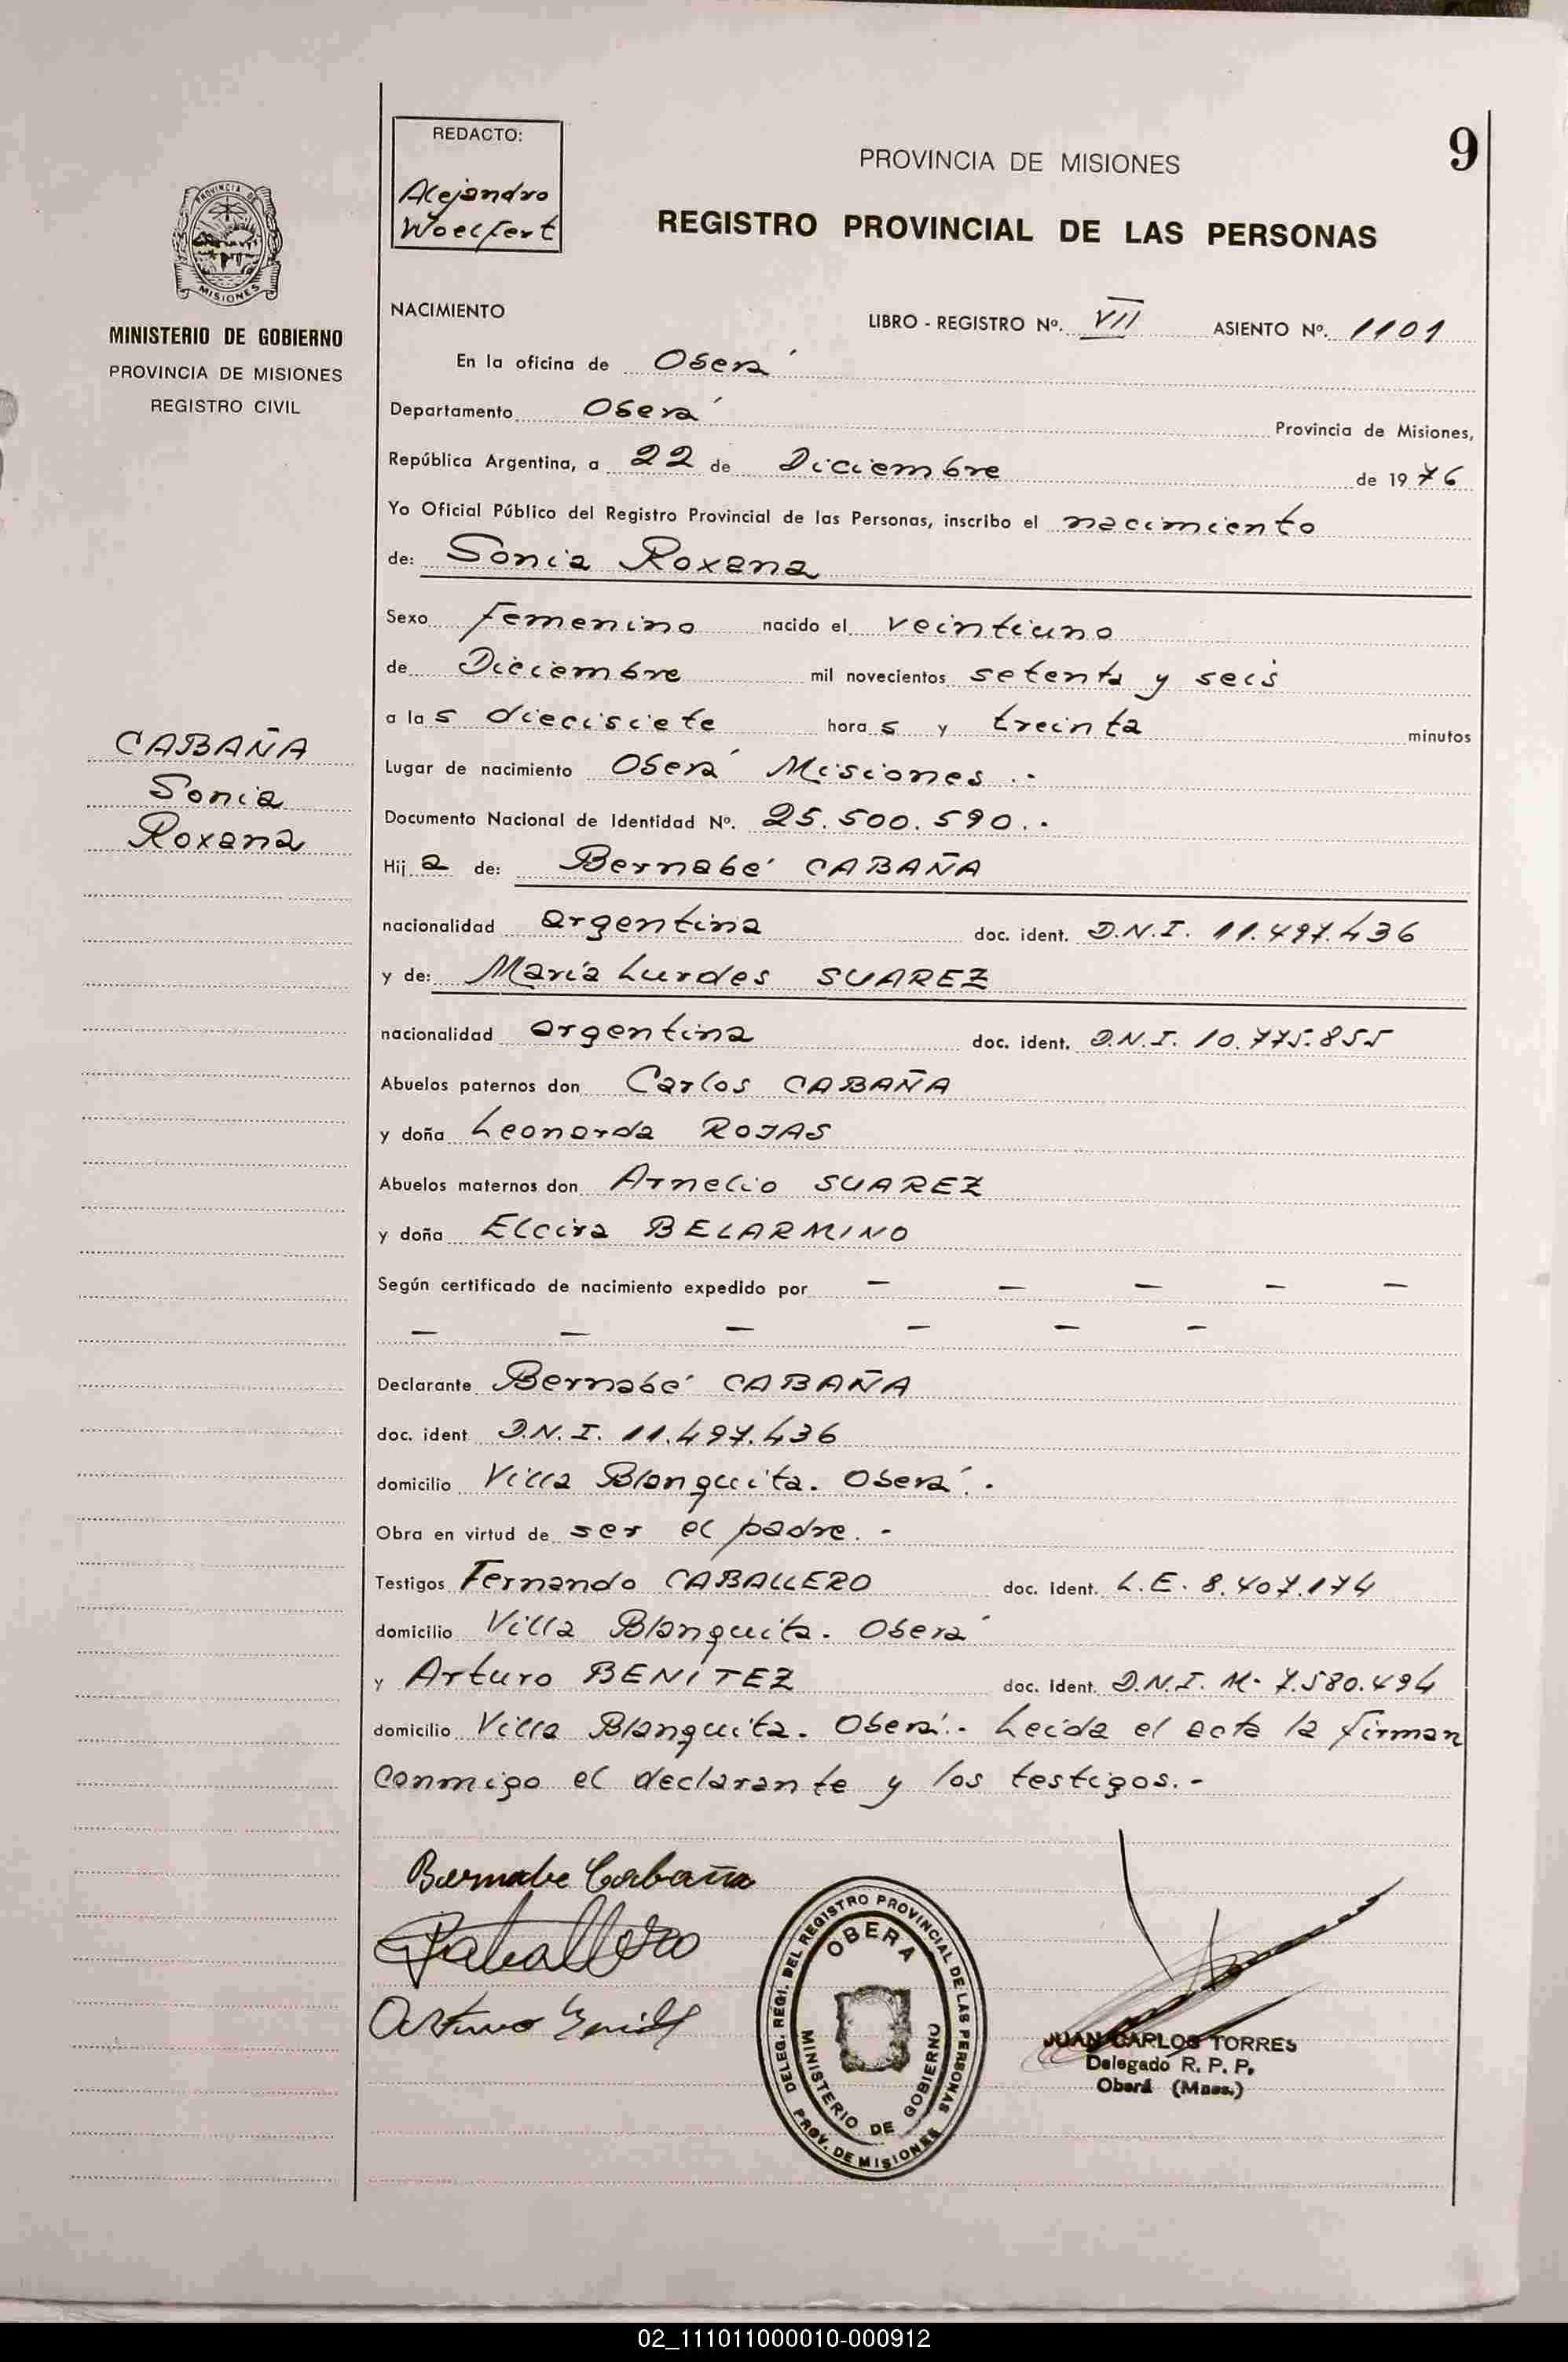 REDACTO:
Alejandro
Woelfert
PROVINCIA DE MISIONES
9
REGISTRO PROVINCIAL DE LAS PERSONAS
PROVINCIA DE
MISIONES
MINISTERIO DE GOBIERNO
PROVINCIA DE MISIONES
REGISTRO CIVIL
NACIMIENTO
LIBRO - REGISTRO Nº. VII ASIENTO Nº. 1101
En la oficina de Oberá
Departamento Oberá Provincia de Misiones,
República Argentina, a 22 de Diciembre de 1976
Yo Oficial Público del Registro Provincial de las Personas, inscribo el nacimiento
de: Sonia Roxana
Sexo femenino nacido el veintiuno
de Dieciembre mil novecientos setenta y seis
a las diecisciete horas y treinta minutos
CABAÑA
Sonia
Roxana
Lugar de nacimiento Oberá Misiones.-
Documento Nacional de Identidad Nº. 25.500.590.-
Hija de: Bernabé CABAÑA
nacionalidad argentina doc. ident. D.N.I. 11.497.436
y de: María Lurdes SUAREZ
nacionalidad argentina doc. ident. D.N.I. 10.775.855
Abuelos paternos don Carlos CABAÑA
y doña Leonarda ROJAS
Abuelos maternos don Arnelio SUAREZ
y doña Elcira BELARMINO
Según certificado de nacimiento expedido por - - - - -
- - - - - -
Declarante Bernabé CABAÑA
doc. ident D.N.I. 11.497.436
domicilio Villa Blanquita. Oberá.-
Obra en virtud de ser el padre.-
Testigos Fernando CABALLERO doc. Ident. L.E. 8.407.174
domicilio Villa Blanquita. Oberá
y Arturo BENÍTEZ doc. Ident. D.N.I. M- 7.580.494
domicilio Villa Blanquita. Oberá.- Leída el acta la firman
conmigo el declarante y los testigos.-
Bernabe Cabaña
Caballero
Arturo
DELEG. REGI. DEL REGISTRO PROVINCIAL DE LAS PERSONAS
OBERA
MINISTERIO DE GOBIERNO
PROV. DE MISIONES
JUAN CARLOS TORRES
Delegado R. P. P.
Oberá (Mnes.)
02_111011000010-000912